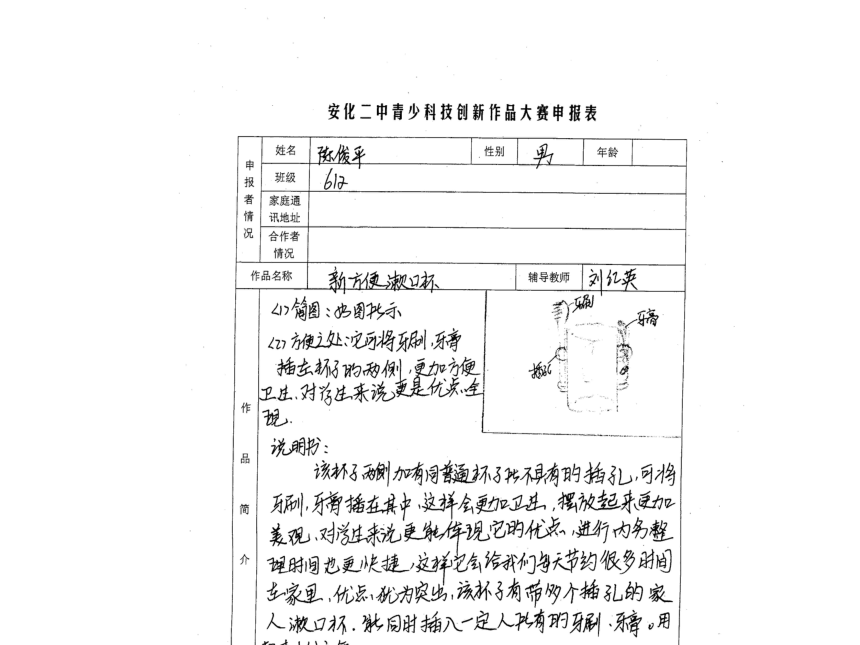 安化二中青少科技创新作品大赛申报表
申报者情况
姓名 陈俊平 性别 男 年龄
班级 612
家庭通讯地址
合作者情况
作品名称 新方便漱口杯 辅导教师 刘红英
作品简介
<1>简图:如图所示
<2>方便之处:它可将牙刷、牙膏
插在杯子的两侧,更加方便
卫生,对学生来说更是优点全
现.
牙刷
牙膏
插孔
说明书:
该杯子两侧加有同普通杯子所不具有的插孔,可将
牙刷,牙膏插在其中,这样会更加卫生,摆放起来更加
美观,对学生来说更能体现它的优点,进行内务整
理时间也更快捷,这样它会给我们每天节约很多时间
在家里,优点,犹为突出,该杯子有带多个插孔的家
人漱口杯.能同时插入一定人所有的牙刷、牙膏。用